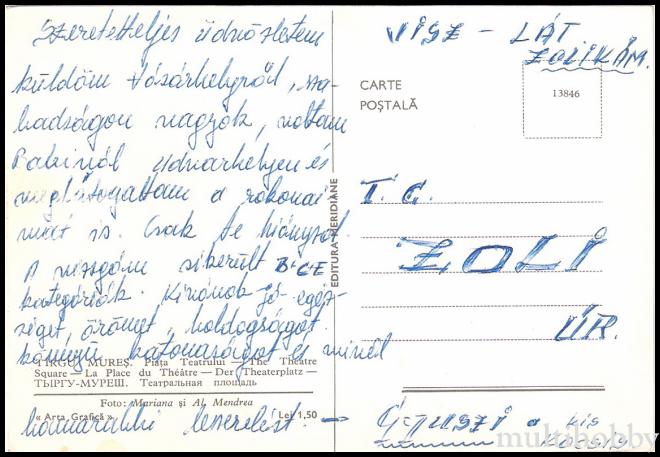 Szeretetteljes üdvözletem
küldöm Vásárhelyről, sza-
badságon vagyok, voltam
Babinál Udvarhelyen és
meglátogattam a rokonai
mat is. Csak te hiányzol
A vizsgám sikerült B+C+E
kategóriák. Kívánok jó egész-
séget, örömet, boldogságot
könnyű katonaságot és minél
hamarabbi leszerelést. →
TÎRGU MUREȘ. Piața Teatrului — The Theatre
Square — La Place du Théâtre — Der Theaterplatz —
ТЫРГУ-МУРЕШ. Театральная площадь
Foto: Mariana și Al. Mendrea
« Arta Grafică »
Lei 1,50
EDITURA MERIDIANE
VISZ - LÁT
ZOLIKÁM.
CARTE
POȘTALĂ
13846
T. C.
ZOLI
ÚR.
a kis
multihobby